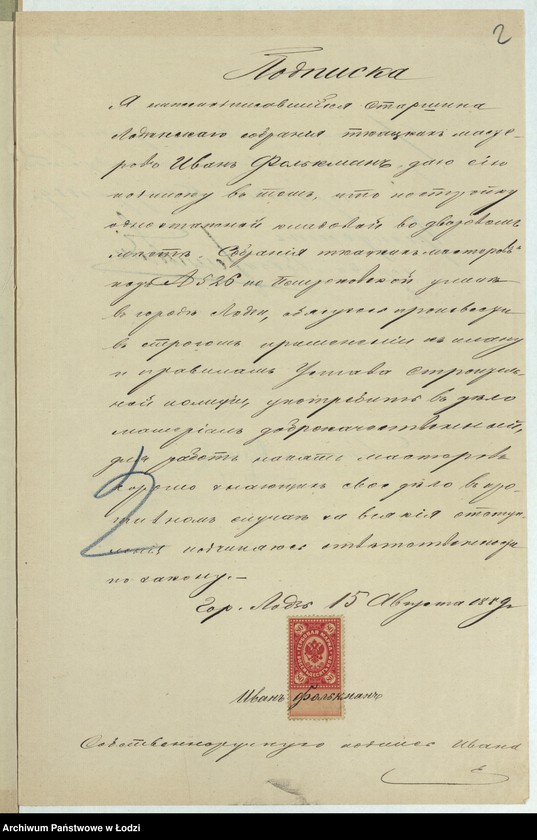 2
Подписка
Я нижеподписавшійся Старшина
Лодзинскаго собранія ткацкихъ масте-
ровъ Иванъ Фолькманъ, даю сію
подписку въ томъ, что постройку
одноэтажной кладовой во дворовомъ
мѣстѣ Собранія ткацкихъ мастеровъ
подъ № 526 по Петроковской улицѣ
въ городѣ Лодзи, обязуюсь произвести
въ строгомъ примѣненіи къ плану
и правиламъ Устава Строитель-
ной полиціи, употребить въ дѣло
матеріалъ доброкачественный,
для работъ нанять мастеровъ
хорошо знающихъ свое дѣло въ про-
тивномъ случаѣ за всякія отступ-
ленія подчиняюсь отвѣтственности
по закону.—
Гор. Лодзь 15 Августа 1889 г.
Иванъ Фолькманъ
Собственноручную подпись Ивана
Archiwum Państwowe w Łodzi